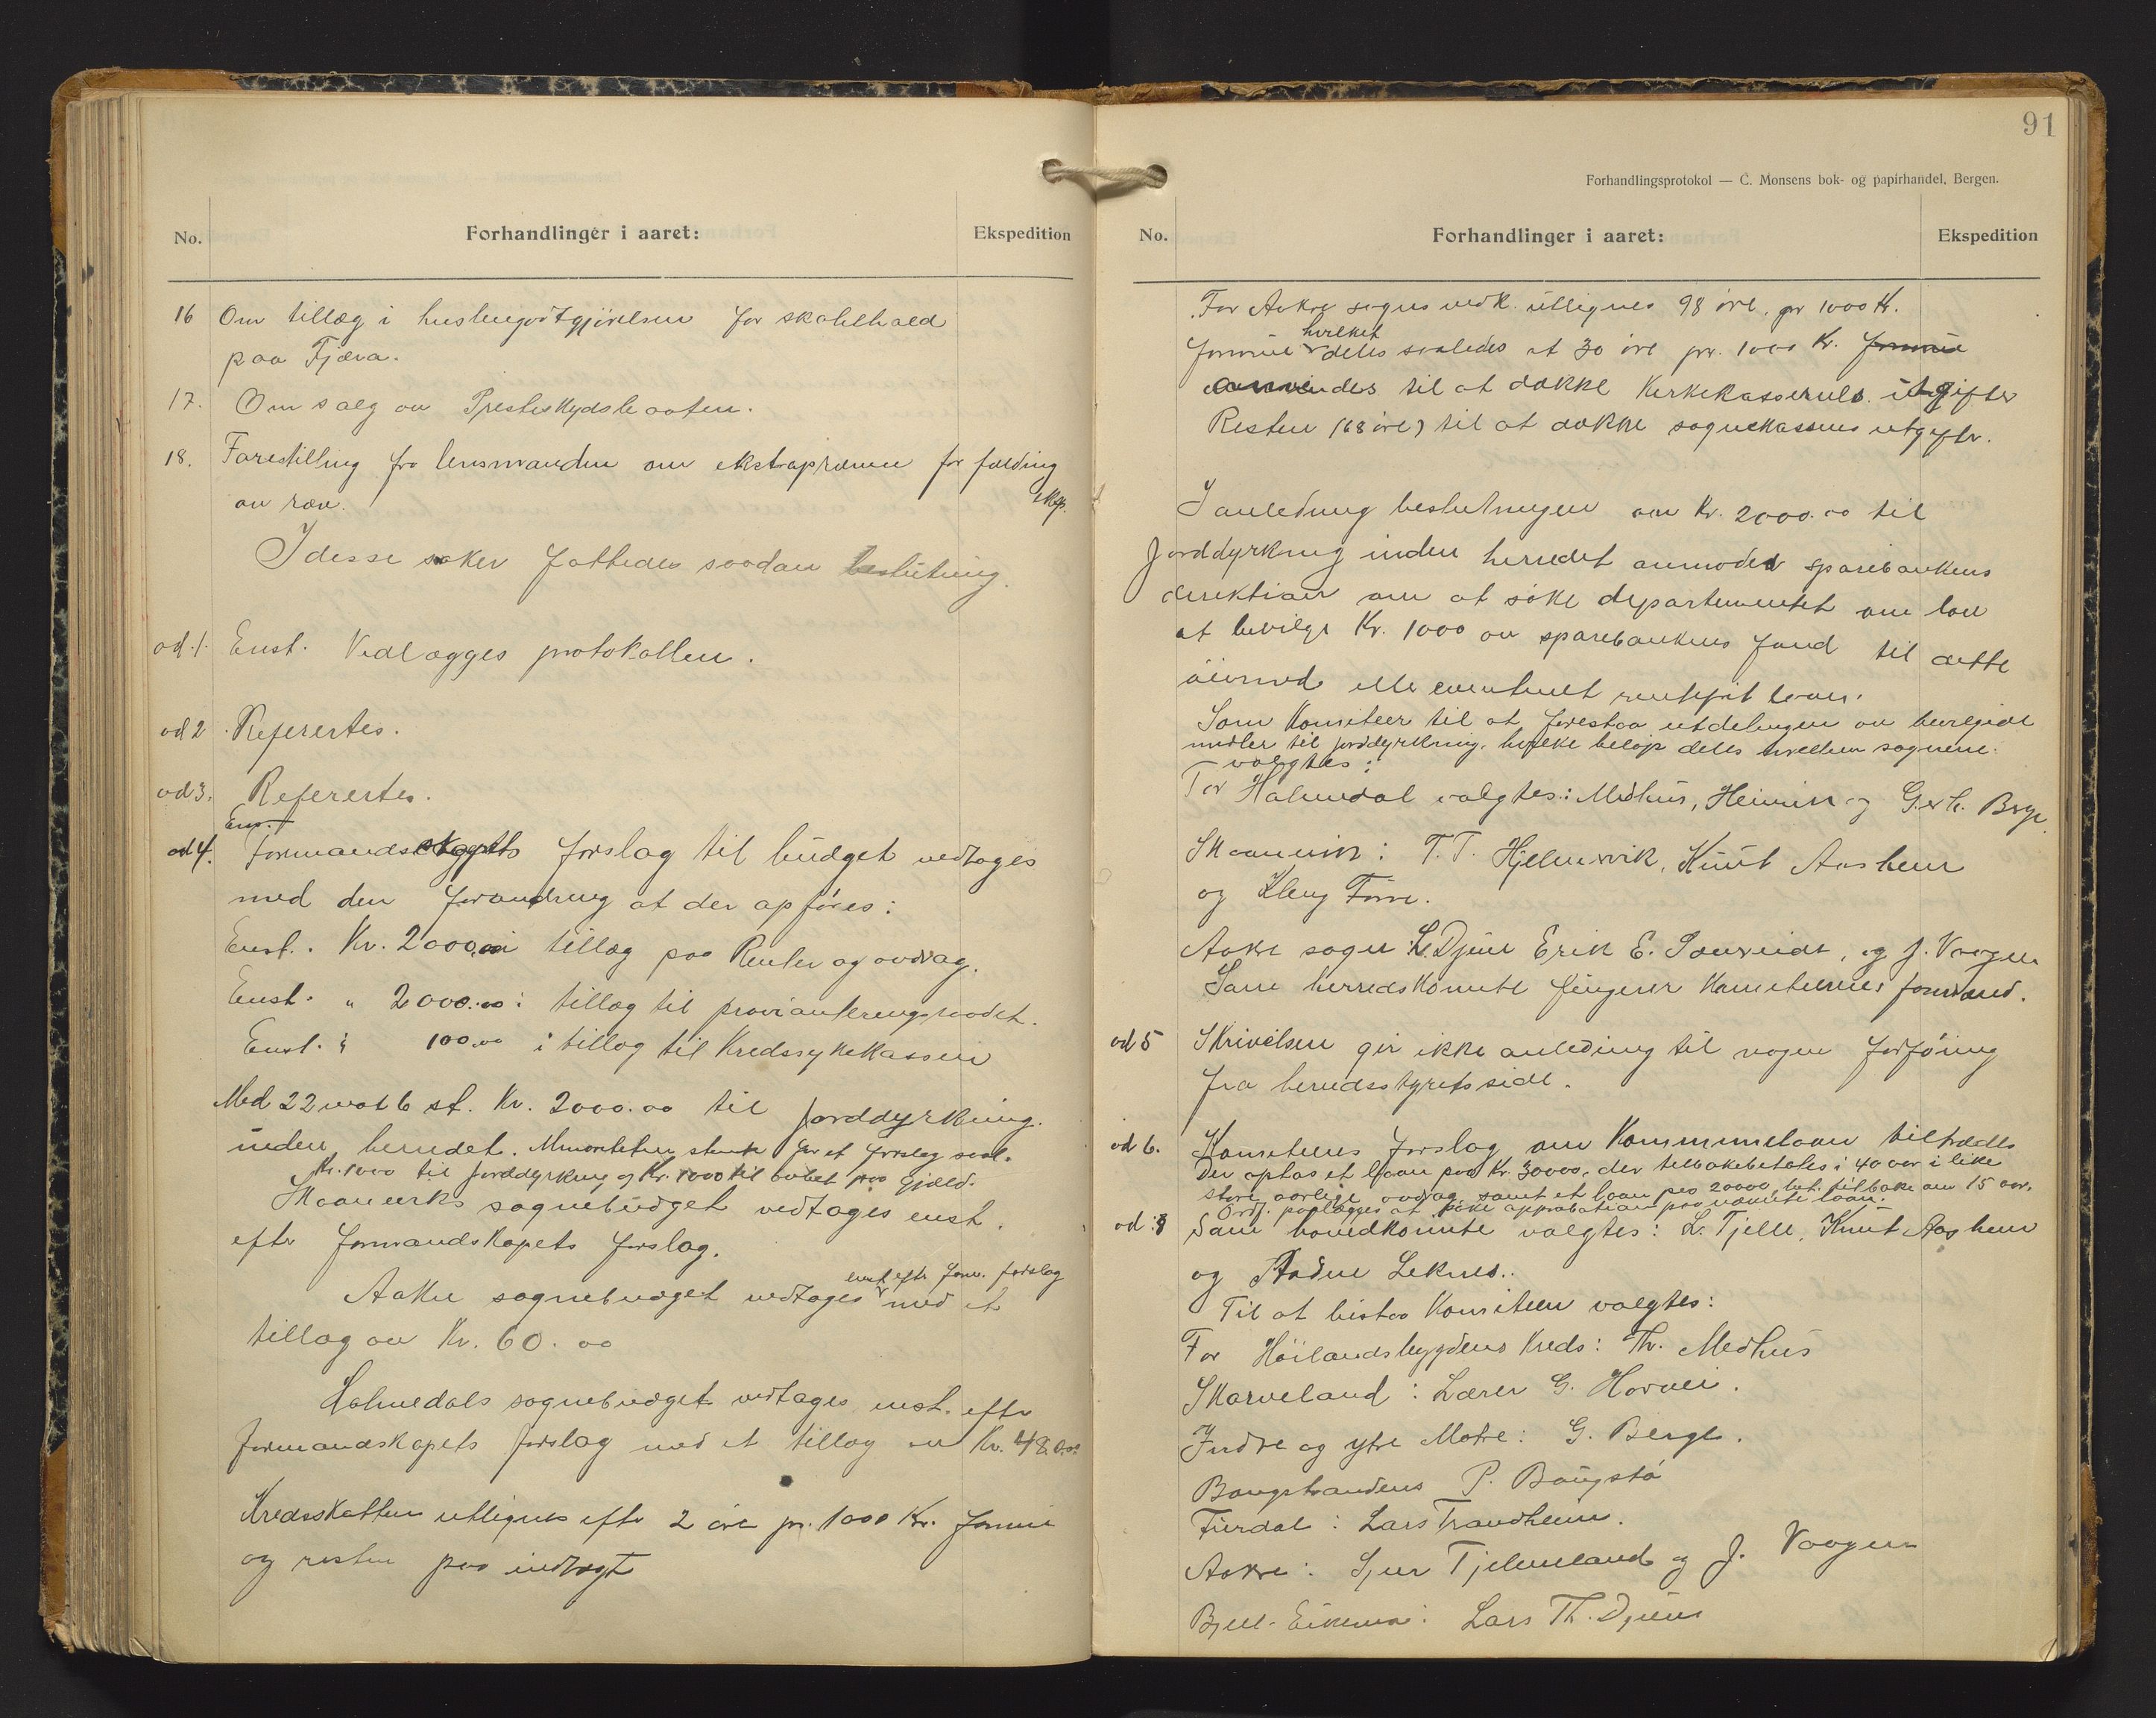 No.
Forhandlinger i aaret:
Ekspedition
16 Om tillæg i husleigodtgjörelsen for skolehald
paa Fjæra.
17. Om salg av Presteskydsbaaten.
18. Forestilling fra lensmanden om ekstrapræmie for fælding
av ræv. eksp.
I desse saker fattedes saadan beslutning.
ad. 1. Enst. Vedlægges protokollen.
ad 2 Referertes.
ad 3. Referertes.
Ens.
ad 4. Formandskapets forslag til budget vedtoges
med den forandring at der opföres:
Enst. Kr. 2000.00 i tillæg paa Renter og avdrag.
Enst. " 2000.00 i tillæg til provianteringsraadet.
Enst. " 100.00 i tillæg til Kredssykekassen
Med 22 mot 6 st. Kr. 2000.00 til Jorddyrkning.
inden herredet. Minoriteten stemte for et forslag saal.
Kr. 1000 til jorddyrkning og Kr. 1000 til avbet. paa gjæld.
Skaaneviks sognebudget vedtoges enst.
efter formandskapets forslag.
enst. efter form. forslag
Aakre sognebudget vedtoges med et
tillæg av Kr. 60.00
Holmedals sognebudget vedtoges enst. efter
formandskapets forslag med et tillæg av Kr. 48.00
Kredsskatten utlignes efter 2 öre pr. 1000 Kr. formue
og resten paa indtægt
91
Forhandlingsprotokol — C. Monsens bok- og papirhandel, Bergen.
No.
Forhandlinger i aaret:
Ekspedition
For Aakre sogns vedk. utlignes 98 öre. pr 1000 Kr.
hvilket
formue deles saaledes at 30 öre pr. 1000 Kr. formue
anvendes til at dække Kirkekassernes utgifter
Resten (68 öre) til at dække sognekassens utgifter.
I anledning beslutningen om Kr. 2000.00 til
Jorddyrkning inden herredet anmodes sparebankens
direktion om at söke departementet om lov
at bevilge Kr. 1000 av sparebankens fond til dette
öiemed eller eventuelt rentefrit laan.
Som Komiteer til at forestaa utdelingen av bevilgede
midler til jorddyrkning, hvilke belöp deles mellem sognene.
valgtes:
For Holmedal valgtes: Medhus, Heimvik og G. Berge
Skaanevik: T. T. Hjelmevik, Knut Aasheim
og Kleng Tørre.
Aakre sogn: L. Djune Erik E. Sandvide, og J. Vaagen
Som herredskomite fungerer Komiteernes formænd.
ad 5 Skrivelsen gir ikke anledning til nogen forföining
fra herredsstyrets side.
ad 6. Komiteens forslag om Kommunelaan tiltrædtes
Der optas et laan paa Kr. 30000, der tilbakebetales i 40 aar i like
store aarlige avdrag, samt et laan paa 20000 bet. tilbake om 15 aar.
Ordf. paalægges at söke approbation paa nævnte laan.
ad. 8 Som hovedkomite valgtes: L. Tjelle, Knut Aasheim
og Leknes.
Til at bistaa Komiteen valgtes:
For Höilandsbygdens Kreds: Th. Medhus
Skarveland: Lærer G. Horvei.
Indre og ytre Matre: G. Berge.
Baugstrandens P. Baugstö
Furdal: Lars Trandheim.
Aakre: Sjur Tjelmeland og J. Vaagen
Bjell-Eikemo: Lars Th. Djune